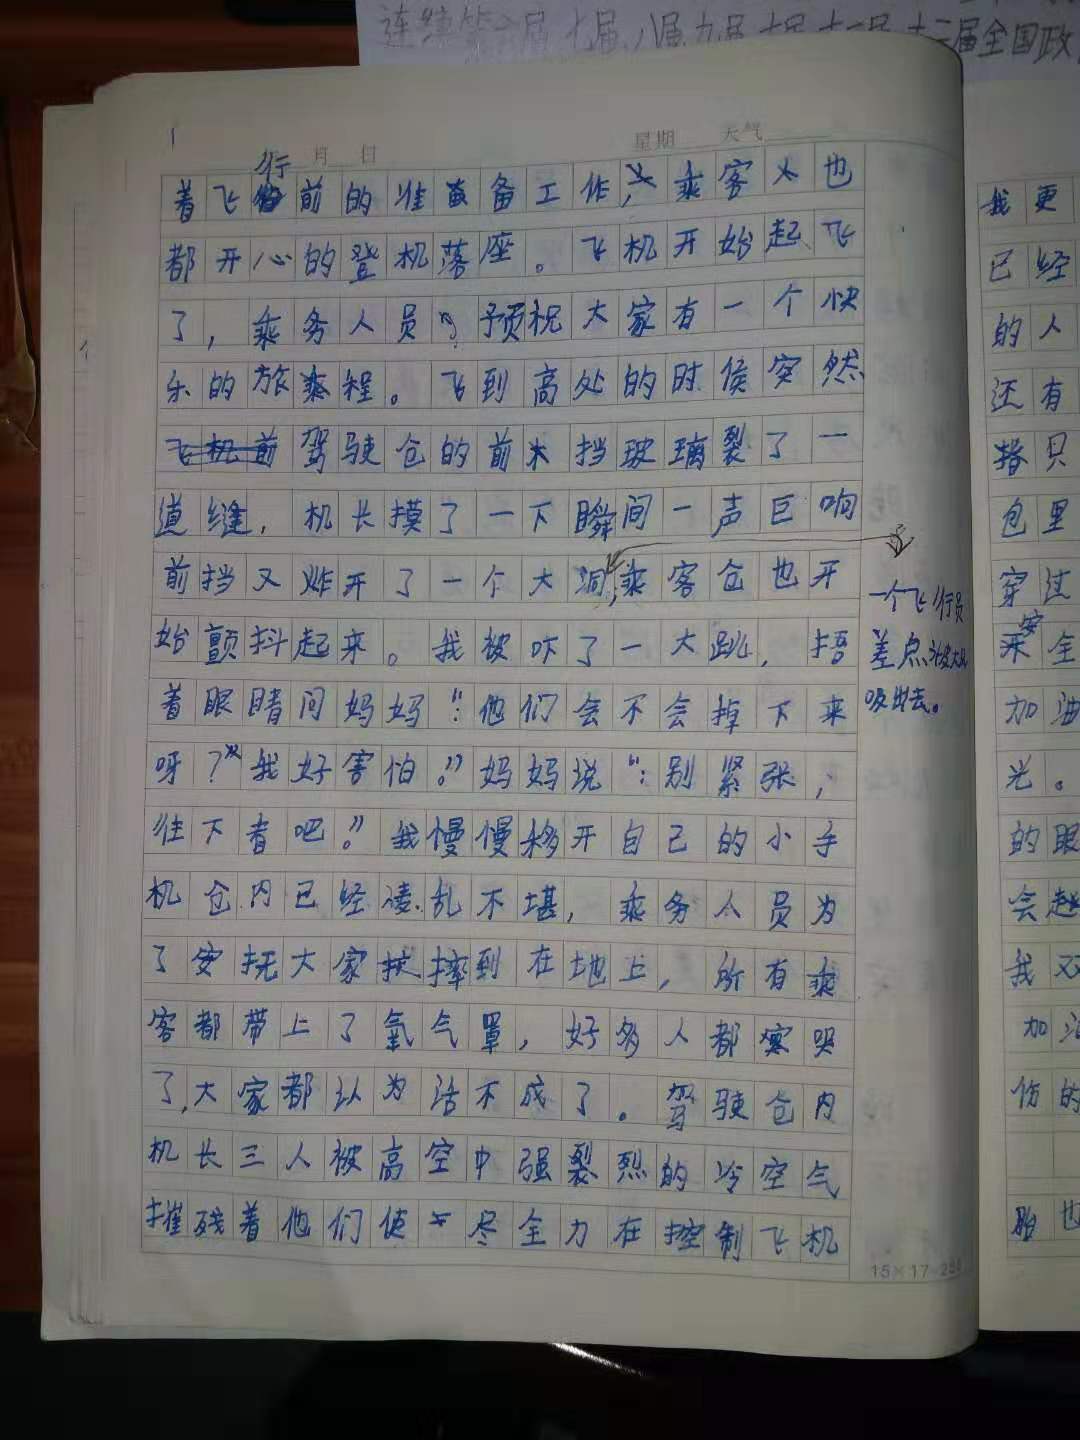 连续第六届七届八届九届十届十一届十二届全国政
1
月 日 星期 天气
行
着飞前的准备工作,乘客人也
都开心的登机落座。飞机开始起飞
了,乘务人员预祝大家有一个快
乐的旅程。飞到高处的时侯突然
飞机前驾驶仓的前挡玻璃裂了一
道缝,机长摸了一下瞬间一声巨响
前挡又炸开了一个大洞,乘客仓也开
始颤抖起来。我被吓了一大跳,捂
着眼睛问妈妈“:他们会不会掉下来
呀?我好害怕。”妈妈说“:别紧张,
往下看吧。”我慢慢移开自己的小手
机仓内已经凌乱不堪,乘务人员为
了安抚大家摔到在地上,所有乘
客都带上了氧气罩,好多人都哭
了,大家都认为活不成了。驾驶仓内
机长三人被高空中强烈的冷空气
摧残着他们使尽全力在控制飞机
一个飞行员
差点被大风
吸出去。
15×17=255
我更
已经
的人
还有
包里
穿过
安全
加油
光。
的眼
会越
我又
加油
伤的
胎也